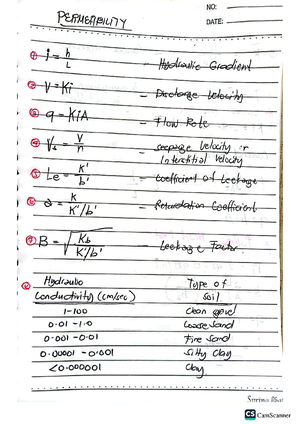 NO:
PERMEABILITY
DATE:
① i = h/L — Hydraulic Gradient
② V = Ki — Discharge Velocity
③ q = KiA — Flow Rate
④ Vs = V/n — seepage Velocity or
Interstitial Velocity
⑤ Le = K'/b' — coefficient of Leakage
⑥ a = K/K'/b' — Retardation Coefficient
⑦ B = √Kb/K'/b' — Leekage Factor
⑧ Hydraulic Type of
Conductivity (cm/sec) Soil
1-100 Clean
0.01 - 1.0 Coarse Sand
0.001 - 0.01 Fine Sand
0.00001 - 0.001 Silty Clay
<0.000001 Clay
CS CamScanner